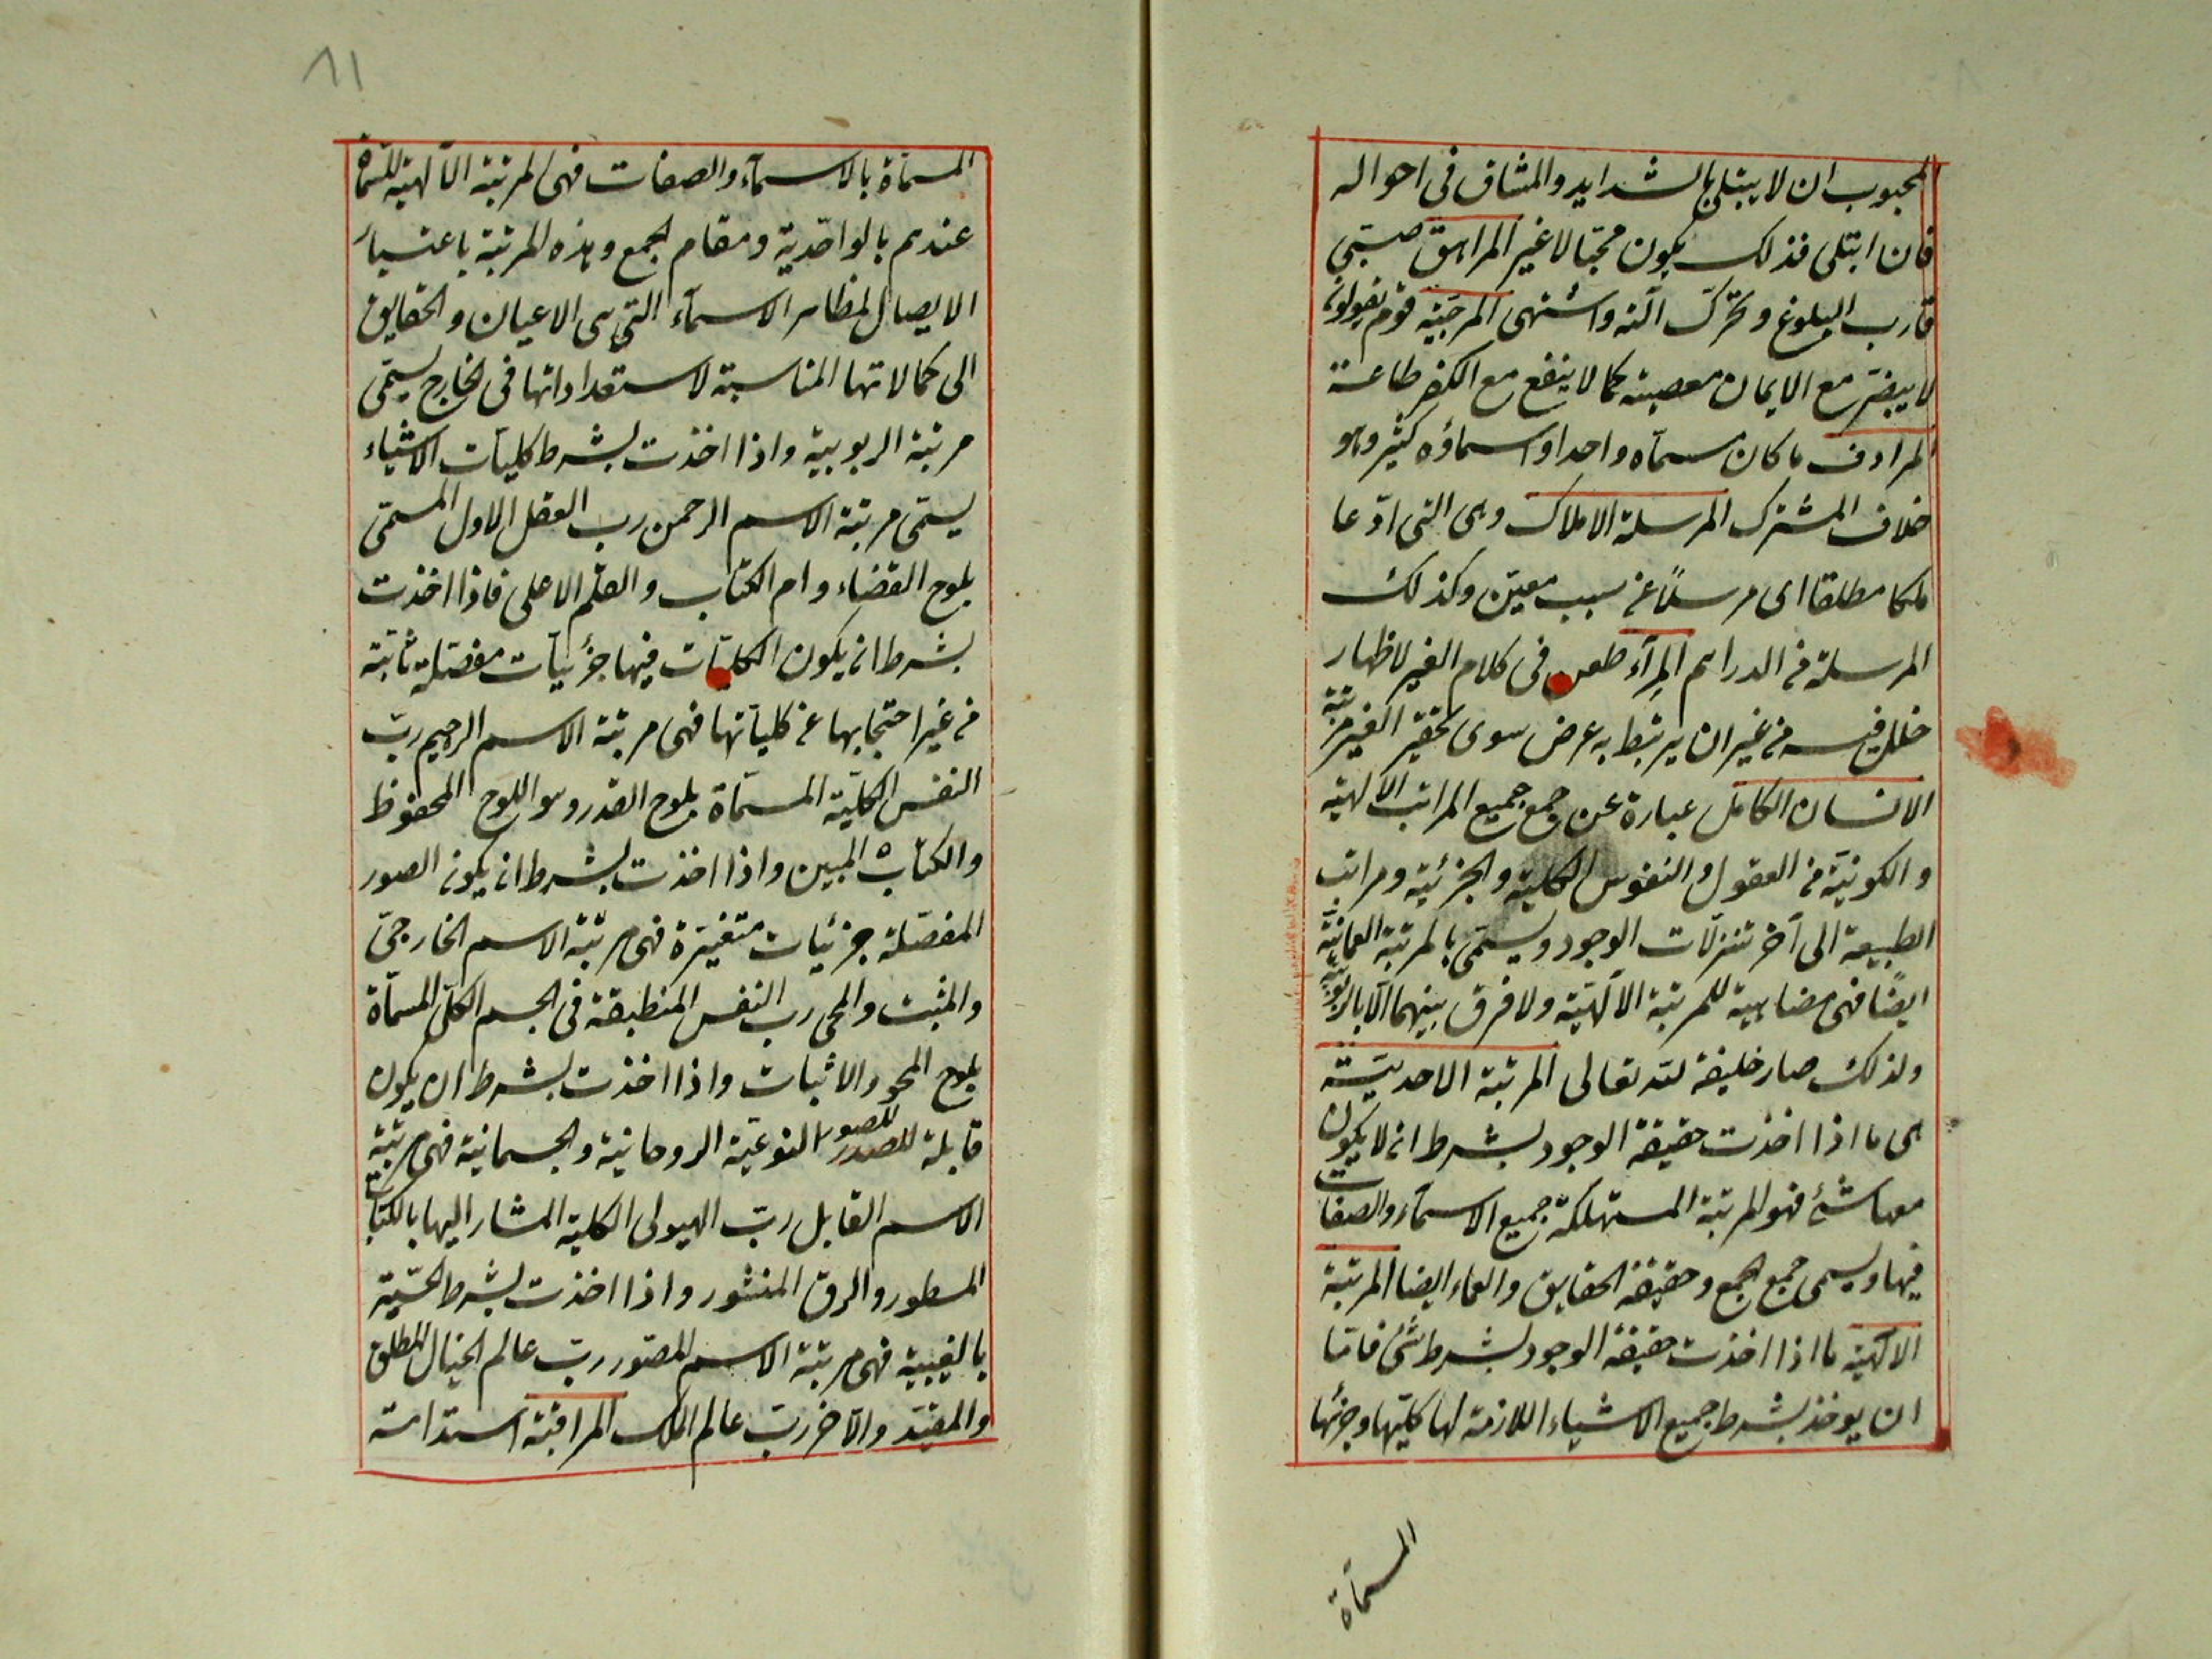 المحبوب ان لا يبتلى بالشدايد والمشاق فى احواله
فان ابتلى فذلك يكون محبّا لا غير المراهق صبىّ
قارب البلوغ وتحرّك آلته واشتهى المرجئة قوم يقولون
لا يضرّ مع الايمان معصية كما لا ينفع مع الكفر طاعة
المرادف ما كان مسمّاه واحدا واسماؤه كثير وهو
خلاف المشترك المرسلة الاملاك وهى التى ادّعا
ملكا مطلقا اى مرسلاً عن سبب معيّن وكذلك
المرسلة من الدراهم المِرآء طعن فى كلام الغير لاظهار
خلل فيه من غير ان يرتبط به غرض سوى تحقير الغير مرتبة
الانسان الكامل عبارة عن جمع جميع المراتب الالهية
والكونيّة من العقول والنفوس الكلية والجزئية ومراتب
الطبيعة الى آخر تنزلات الوجود ويسمّى بالمرتبة العمائية
ايضًا فهى مضاهية للمرتبة الالٓهيّة ولا فرق بينهما الّا بالربوبيّة
ولذلك صار خليفة لله تعالى المرتبة الاحديّة
هى ما اذا اخذت حقيقة الوجود بشرط ان لا يكون
معها شئ فهو المرتبة المستهلكة جميع الاسمآء والصفات
فيها ويسمى جمع الجمع وحقيقة الحقايق والعماء ايضا المرتبة
الالهيّة ما اذا اخذت حقيقة الوجود بشرط شئ فامّا
ان يوخذ بشرط جميع الاشياء اللازمة لها كليّها وجزئها
المسمّاة
٨١
المسمّاة بالاسمآء والصفات فهى المرتبة الآلهية المسمّاة
عندهم بالواحديّة ومقام الجمع وهذه المرتبة باعتبار
الايصال لمظاهر الاسمآء التى هى الاعيان والحقايق
الى كمالاتها المناسبة لاستعداداتها فى الخارج يسمّى
مرتبة الربوبية واذا اخذت بشرط كليات الاشياء
يسمّى مرتبة الاسم الرحمن رب العقل الاول المسمّى
بلوح القضاء وام الكتاب والقلم الاعلى فاذا اخذت
بشرط ان يكون الكليّات فيها جزئيات مفصّلة ثابتة
من غير احتجابها عن كلياتها فهى مرتبة الاسم الرحيم ربّ
النفس الكليّة المسمّاة بلوح القدر وهو اللوح المحفوظ
والكتاب المبين واذا اخذت بشرط ان يكون الصور
المفصّلة جزئيات متغيرة فهى مرتبة الاسم الخارجىّ
والمثبت والمحى رب النفس المنطبقة فى الجسم الكلّى المسمّاة
بلوح المحو والاثبات واذا اخذت بشرط ان يكون
قابلة للصور النوعيّة الروحانية والجسمانية فهى مرتبة
الاسم القابل ربّ الهيولى الكلية المشار اليها بالكتاب
المسطور والرق المنشور واذا اخذت بشرط الحسّية
بالغيبية فهى مرتبة الاسم المصوّر ربّ عالم الخيال المطلق
والمقيّد والآخر ربّ عالم الملك المراقبة استدامة